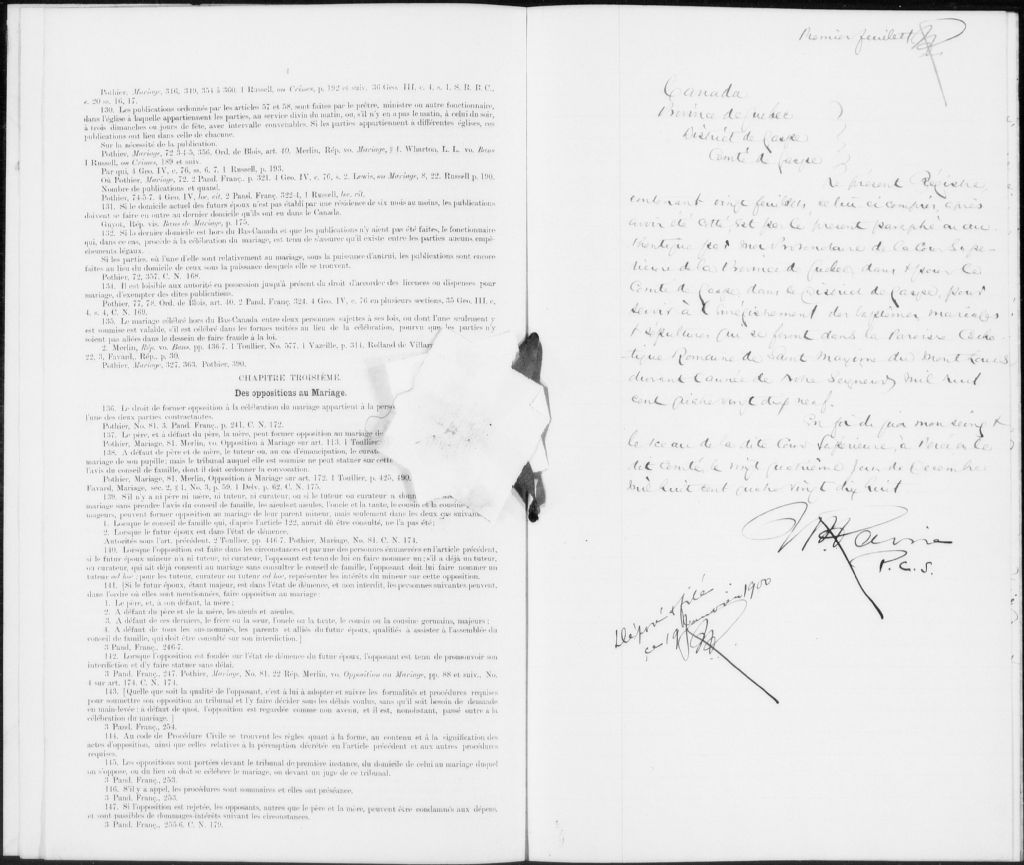 Pothier, Mariage, 346, 349, 354 à 360. 1 Russell, on Crimes, p. 192 et suiv. 36 Geo. III, c. 4, s. 1. S. R. B. C.,
c. 20 ss. 16, 17.
130. Les publications ordonnées par les articles 57 et 58, sont faites par le prêtre, ministre ou autre fonctionnaire,
dans l'église à laquelle appartiennent les parties, au service divin du matin, ou, s'il n'y en a pas le matin, à celui du soir,
à trois dimanches ou jours de fête, avec intervalle convenables. Si les parties appartiennent à différentes églises, ces
publications ont lieu dans celle de chacune.
Sur la nécessité de la publication.
Pothier, Mariage, 72 3-4-5, 356. Ord. de Blois, art. 40. Merlin, Rép. vo. Mariage, § 4. Wharton, L. L. vo. Bans
1 Russell, on Crimes, 189 et suiv.
Par qui, 4 Geo. IV, c. 76, ss. 6, 7. 1 Russell, p. 193.
Où Pothier, Mariage, 72. 2 Pand. Franç. p. 321. 4 Geo. IV, c. 76, s. 2. Lewis, on Mariage, 8, 22. Russell p. 190.
Nombre de publications et quand.
Pothier, 74-5-7. 4 Geo. IV, loc. cit. 2 Pand. Franç. 322-4, 1 Russell, loc. cit.
131. Si le domicile actuel des futurs époux n'est pas établi par une résidence de six mois au moins, les publications
doivent se faire en outre au dernier domicile qu'ils ont eu dans le Canada.
Guyot, Rép. vis. Bans de Mariage, p. 175.
132. Si la dernier domicile est hors du Bas-Canada et que les publications n'y aient pas été faites, le fonctionnaire
qui, dans ce cas, procède à la célébration du mariage, est tenu de s'assurer qu'il existe entre les parties aucuns empê-
chements légaux.
Si les parties, où l'une d'elle sont relativement au mariage, sous la puissance d'autrui, les publications sont encore
faites au lieu du domicile de ceux sous la puissance desquels elle se trouvent.
Pothier, 72, 357. C. N. 168.
134. Il est loisible aux autorité en possession jusqu'à présent du droit d'accorder des licences ou dispenses pour
mariage, d'exempter des dites publications.
Pothier, 77, 78. Ord. de Blois, art. 40. 2 Pand. Franç. 324. 4 Geo. IV, c. 76 en plusieurs sections, 35 Geo. III, c.
4, s. 4, C. N. 169.
135. Le mariage célébré hors du Bas-Canada entre deux personnes sujettes à ses lois, ou dont l'une seulement y
est soumise est valable, s'il est célébré dans les formes usitées au lieu de la célébration, pourvu que les parties n'y
soient pas allées dans le dessein de faire fraude à la loi.
2. Merlin, Rép. vo. Bans, pp. 436-7. 1 Toullier, No. 577. 1 Vazeille, p. 314. Rolland de Villar
22, 3, Favard., Rép., p. 39.
Pothier, Mariage, 327, 363. Pothier, 390.
CHAPITRE TROISIÈME.
Des oppositions au Mariage.
136. Le droit de former opposition à la célébration du mariage appartient à la perso
l'une des deux parties contractantes.
Pothier, No. 81. 3. Pand. Franç., p. 241, C. N. 172.
137. Le père, et à défaut du père, la mère, peut former opposition au mariage de
Pothier, Mariage, 81. Merlin, vo. Opposition à Mariage sur art. 113. 1 Toullier
138. A défaut de père et de mère, le tuteur ou, au cas d'émancipation, le curat
mariage de son pupille; mais le tribunal auquel elle est soumise ne peut statuer sur cette
l'avis du conseil de famille, dont il doit ordonner la convocation.
Pothier, Mariage, 81. Merlin, Opposition à Mariage sur art. 172. 1 Toullier, p. 425, 490.
Favard, Mariage, sec. 2, § 1, No. 3, p. 59. 1 Delv. p. 62, C. N. 175.
139. S'il n'y a ni père ni mère, ni tuteur, ni curateur, ou si le tuteur ou curateur a donn
mariage sans prendre l'avis du conseil de famille, les aïeuls et aïeules, l'oncle et la tante, le cousin et la cousine,
majeurs, peuvent former opposition au mariage de leur parent mineur, mais seulement dans les deux cas suivants.
1. Lorsque le conseil de famille qui, d'après l'article 122, aurait dû être consulté, ne l'a pas été;
2. Lorsque le futur époux est dans l'état de démence.
Autorités sous l'art. précédent. 2 Toullier, pp. 446-7. Pothier, Mariage, No. 81. C. N. 174.
140. Lorsque l'opposition est faite dans les circonstances et par une des personnes énumérées en l'article précédent,
si le futur époux mineur n'a ni tuteur, ni curateur, l'opposant est tenu de lui en faire nommer un; s'il a déjà un tuteur
ou curateur, qui ait déjà consenti au mariage sans consulter le conseil de famille, l'opposant doit lui faire nommer un
tuteur ad hoc; pour les tuteur, curateur ou tuteur ad hoc, représenter les intérêts du mineur sur cette opposition.
141. [Si le futur époux, étant majeur, est dans l'état de démence, et non interdit, les personnes suivantes peuvent,
dans l'ordre où elles sont mentionnées, faire opposition au mariage:
1. Le père, et, à son défaut, la mère;
2. A défaut du père et de la mère, les aïeuls et aïeules.
3. A défaut de ces derniers, le frère ou la sœur, l'oncle ou la tante, le cousin ou la cousine germains, majeurs;
4. A défaut de tous les sus-nommés, les parents et alliés du futur époux, qualifiés à assister à l'assemblée du
conseil de famille, qui doit être consulté sur son interdiction.]
3 Pand. Franç., 246-7.
142. Lorsque l'opposition est fondée sur l'état de démence du futur époux, l'opposant est tenu de promouvoir son
interdiction et d'y faire statuer sans délai.
3 Pand. Franç., 247. Pothier, Mariage, No. 81. 22 Rép. Merlin, vo. Opposition au Mariage, pp. 88 et suiv., No.
4 sur art. 174. C. N. 174.
143. [Quelle que soit la qualité de l'opposant, c'est à lui à adopter et suivre les formalités et procédures requises
pour soumettre son opposition au tribunal et l'y faire décider sous les délais voulus, sans qu'il soit besoin de demande
en main-levée; à défaut de quoi, l'opposition est regardée comme non avenu, et il est, nonobstant, passé outre à la
célébration du mariage.]
3 Pand. Franç., 254.
144. Au code de Procédure Civile se trouvent les règles quant à la forme, au contenu et à la signification des
actes d'opposition, ainsi que celles relatives à la péremption décrétée en l'article précédent et aux autres procédures
requises.
145. Les oppositions sont portées devant le tribunal de première instance, du domicile de celui au mariage duquel
on s'oppose, ou du lieu où doit se célébrer le mariage, ou devant un juge de ce tribunal.
3 Pand. Franç., 253.
146. S'il y a appel, les procédures sont sommaires et elles ont préséance.
3 Pand. Franç., 253.
147. Si l'opposition est rejetée, les opposants, autres que le père et la mère, peuvent être condamnés aux dépens,
et sont passibles de dommages-intérêts suivant les circonstances.
3 Pand. Franç., 255-6. C. N. 179.
Premier feuillet
Canada
Province de Quebec
District de Gaspe
Comté de Gaspe
Le présent Régistre,
contenant vingt feuillets, celui ci compris, après
avoir été coté, est par le présent paraphé au-
thentiqué par moi Protonotaire de la Cour Supe-
rieure de la Province de Quebec, dans & pour le
Comté de Gaspe dans le District de Gaspe, pour
servir à l'enregistrement des baptêmes mariages
& sépultures qui se feront dans la Paroisse Catho-
lique Romaine de Saint Maxime du Mont Louis
durant l'année de Notre Seigneur Mil huit
cent quatre vingt dix neuf.
En foi de quoi mon seing &
le sceau de la dite Cour Supérieure, à Percé dans le
dit Comté le vingt quatrième jour de Decembre
Mil huit cent quatre vingt dix huit
P.C.S.
Déposé & filé
ce 19 Janvier 1900